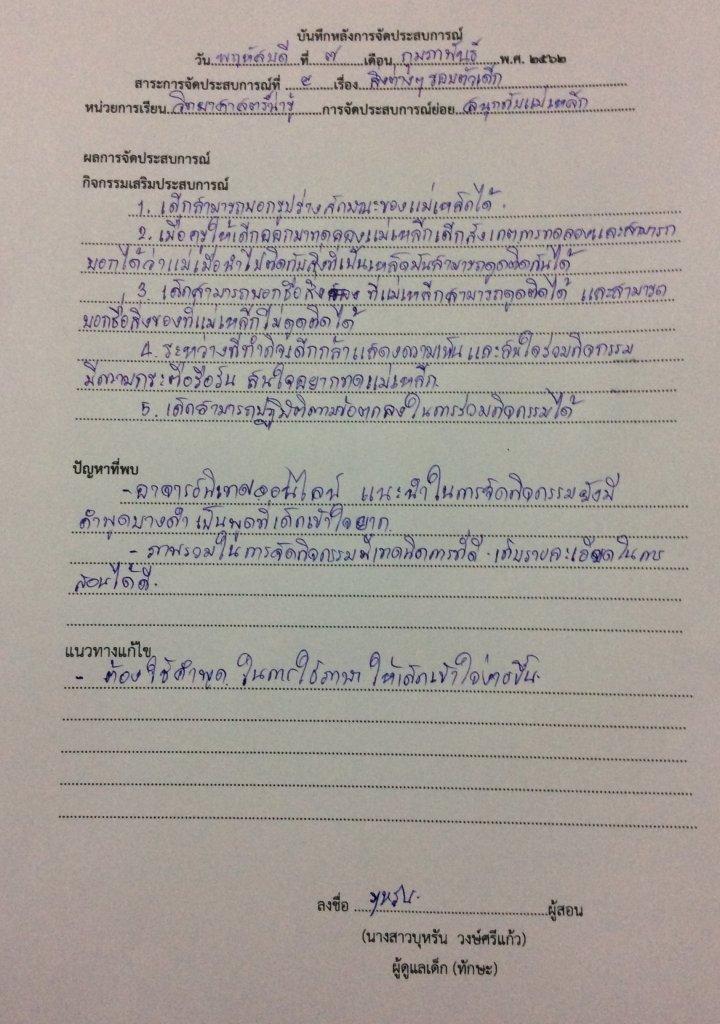 บันทึกหลังการจัดประสบการณ์
วัน พฤหัสบดี ที่ ๗ เดือน กุมภาพันธ์ พ.ศ. ๒๕๖๒
สาระการจัดประสบการณ์ที่ ๔ เรื่อง สิ่งต่างๆ รอบตัวเด็ก
หน่วยการเรียน วิทยาศาสตร์น่ารู้ การจัดประสบการณ์ย่อย สนุกกับแม่เหล็ก
ผลการจัดประสบการณ์
กิจกรรมเสริมประสบการณ์
1. เด็กสามารถบอกรูปร่างลักษณะของแม่เหล็กได้.
2. เมื่อครูให้เด็กออกมาทดลองแม่เหล็กเด็กสังเกตการทดลองและสามารถ
บอกได้ว่าแม่เมื่อนำไปติดกับสิ่งที่เป็นเหล็กมันสามารถดูดติดกันได้
3. เด็กสามารถบอกชื่อสิ่งของ ที่แม่เหล็กสามารถดูดติดได้ และสามารถ
บอกชื่อสิ่งของที่แม่เหล็กไม่ดูดติดได้
4. ระหว่างที่ทำกิจ เด็กกล้าแสดงความเห็น และสนใจร่วมกิจกรรม
มีความกระตือรือร้น สนใจอยากทดแม่เหล็ก
5. เด็กสามารถปฏิบัติตามข้อตกลงในการร่วมกิจกรรมได้
ปัญหาที่พบ
- อาจารย์นิเทศออนไลน์ แนะนำในการจัดกิจกรรมยังมี
คำพูดบางคำ เป็นพูดที่เด็กเข้าใจยาก
- ภาพรวมในการจัดกิจกรรมมีเทคนิคการที่ดี เก็บรายละเอียดในการ
สอนได้ดี.
แนวทางแก้ไข
- ต้องใช้คำพูด ในการใช้ภาษา ให้เด็กเข้าใจง่ายขึ้น
ลงชื่อ บุหรัน ผู้สอน
(นางสาวบุหรัน วงษ์ศรีแก้ว)
ผู้ดูแลเด็ก (ทักษะ)